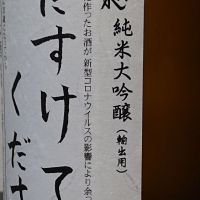 純米大吟醸(輸出用)
に作ったお酒が新型コロナウイルスの影響により余っ
たすけて
くださ